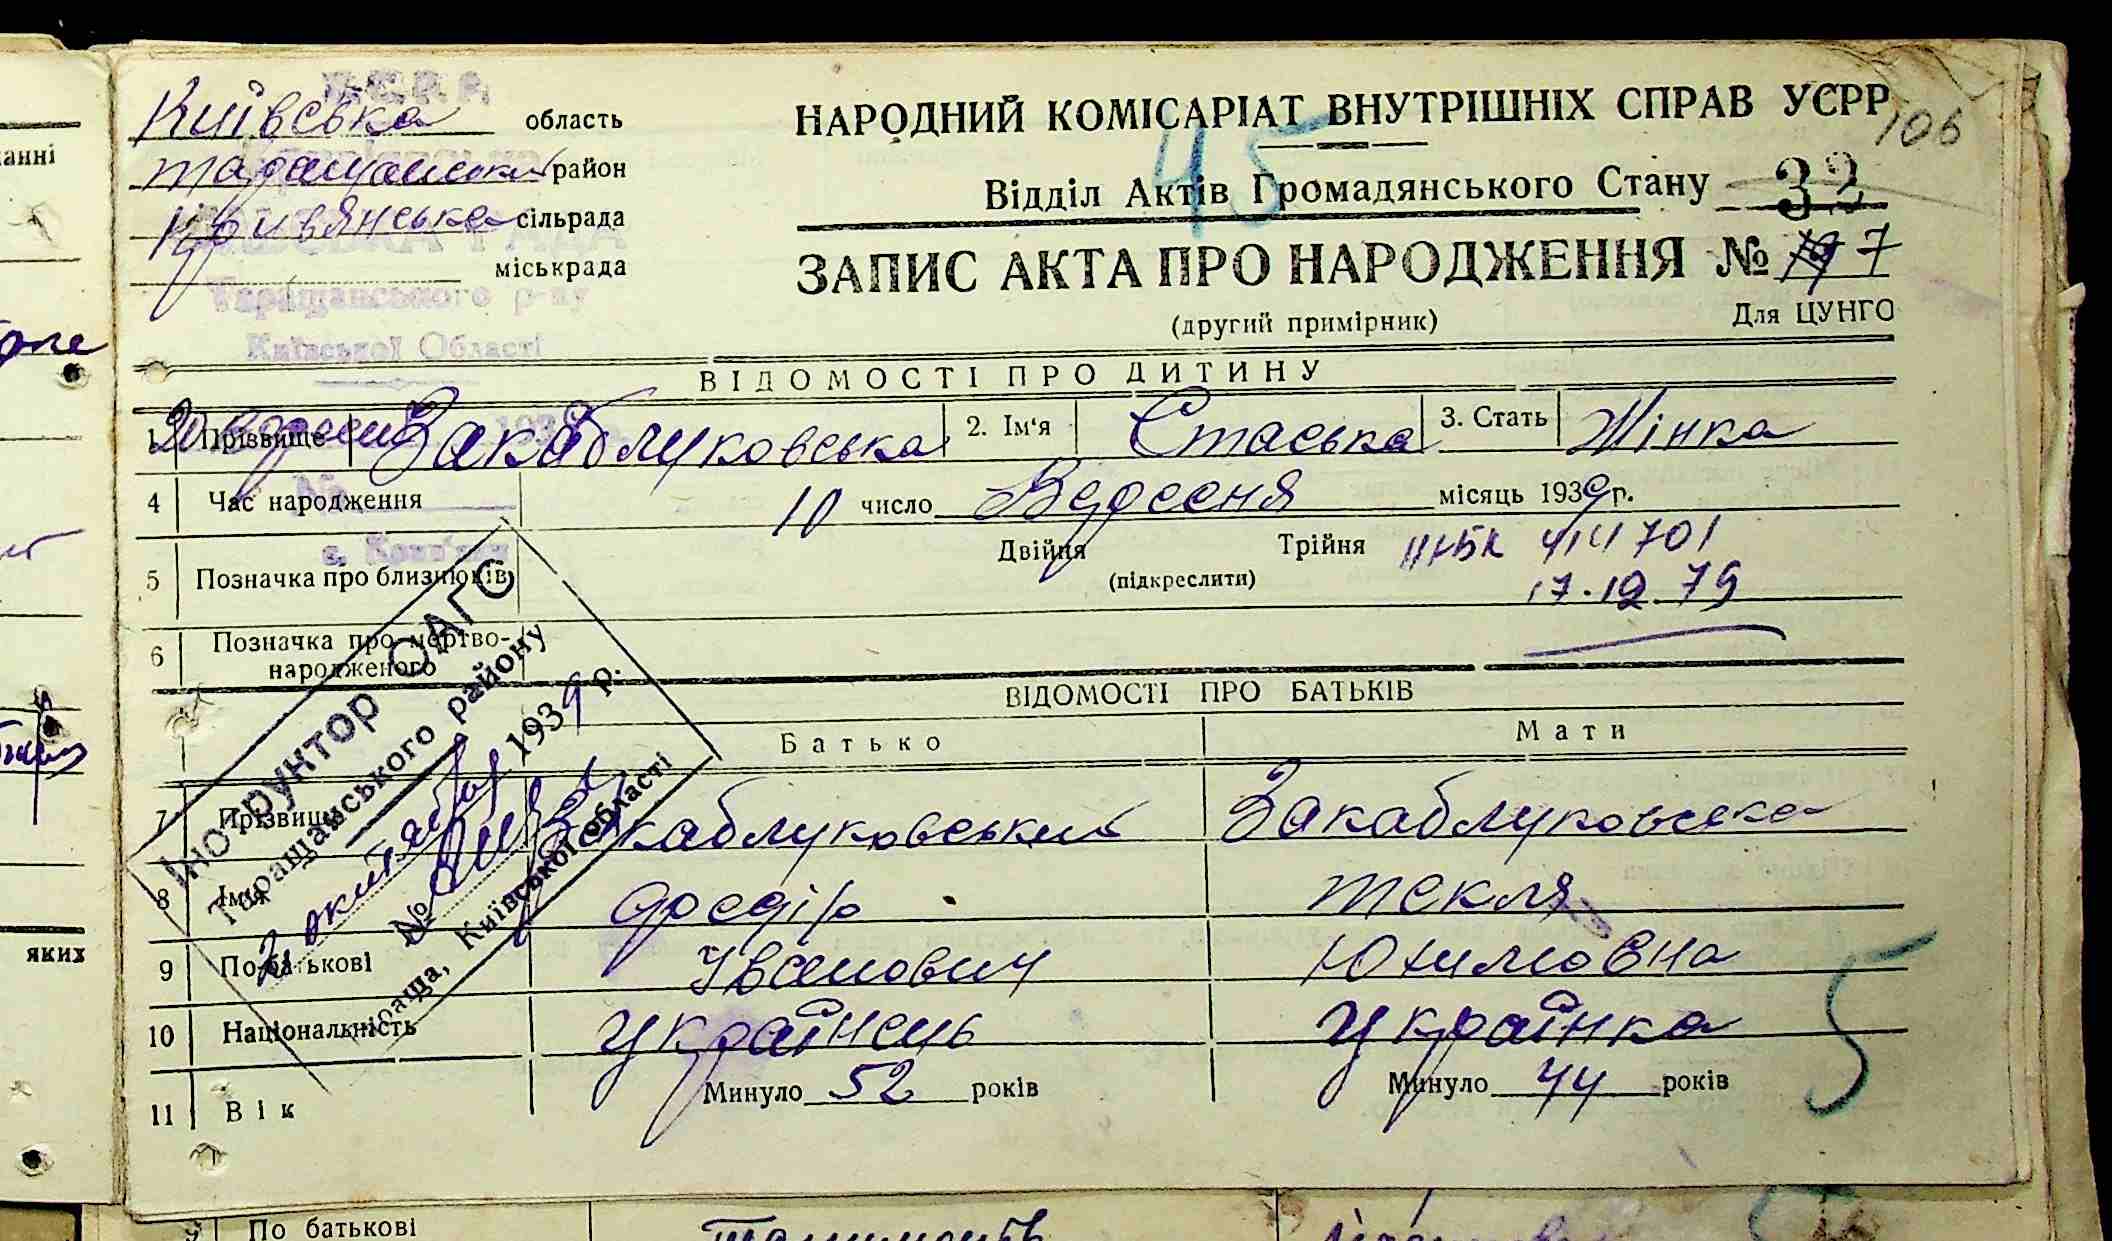 Київська область
район
сільрада
міськрада
Таращанського р-ну
Київської Області
НАРОДНИЙ КОМІСАРІАТ ВНУТРІШНІХ СПРАВ УСРР
106
45
Відділ Актів Громадянського Стану 32
ЗАПИС АКТА ПРО НАРОДЖЕННЯ № 7
(другий примірник) Для ЦУНГО
ВІДОМОСТІ ПРО ДИТИНУ
1 Прізвище Закаблуковська 2. Ім'я Стаська 3. Стать Жінка
4 Час народження 10 число Вересня місяць 1939 р.
5 Позначка про близнюків Двійня Трійня
(підкреслити)
414701
17.12.79
6 Позначка про мертво-
народженого
Інструктор ОАГС
Таращанського району
1939 р.
№
Київської області
ВІДОМОСТІ ПРО БАТЬКІВ
Батько Мати
7 Прізвище Закаблуковський Закаблуковска
8 Ім'я Федір Текля
9 По батькові Іванович Юхимовна
10 Національність Українець Українка
11 Вік Минуло 52 років Минуло 44 років
5
яких
9 По батькові